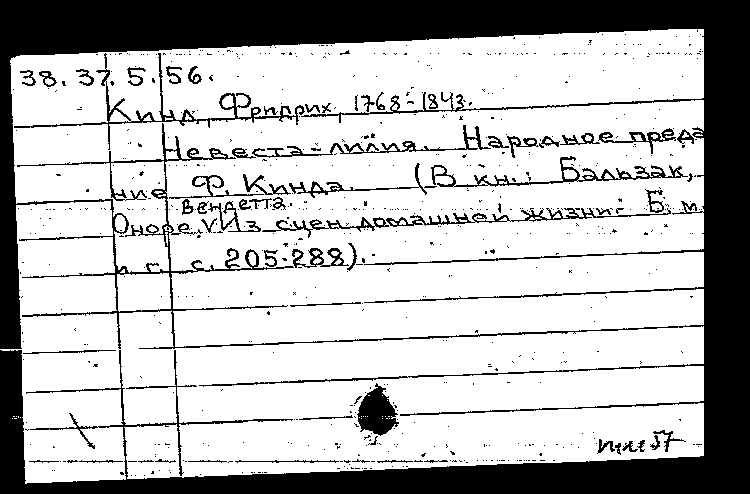 38. 37. 5. 56.
Кинд, Фридрих, 1768-1843.
Невеста-лилия. Народное преда
ние Ф. Кинда. (В кн.: Бальзак,
Вендетта.
Оноре. V Из сцен домашней жизни. Б. м.
и г. с. 205-288).
57